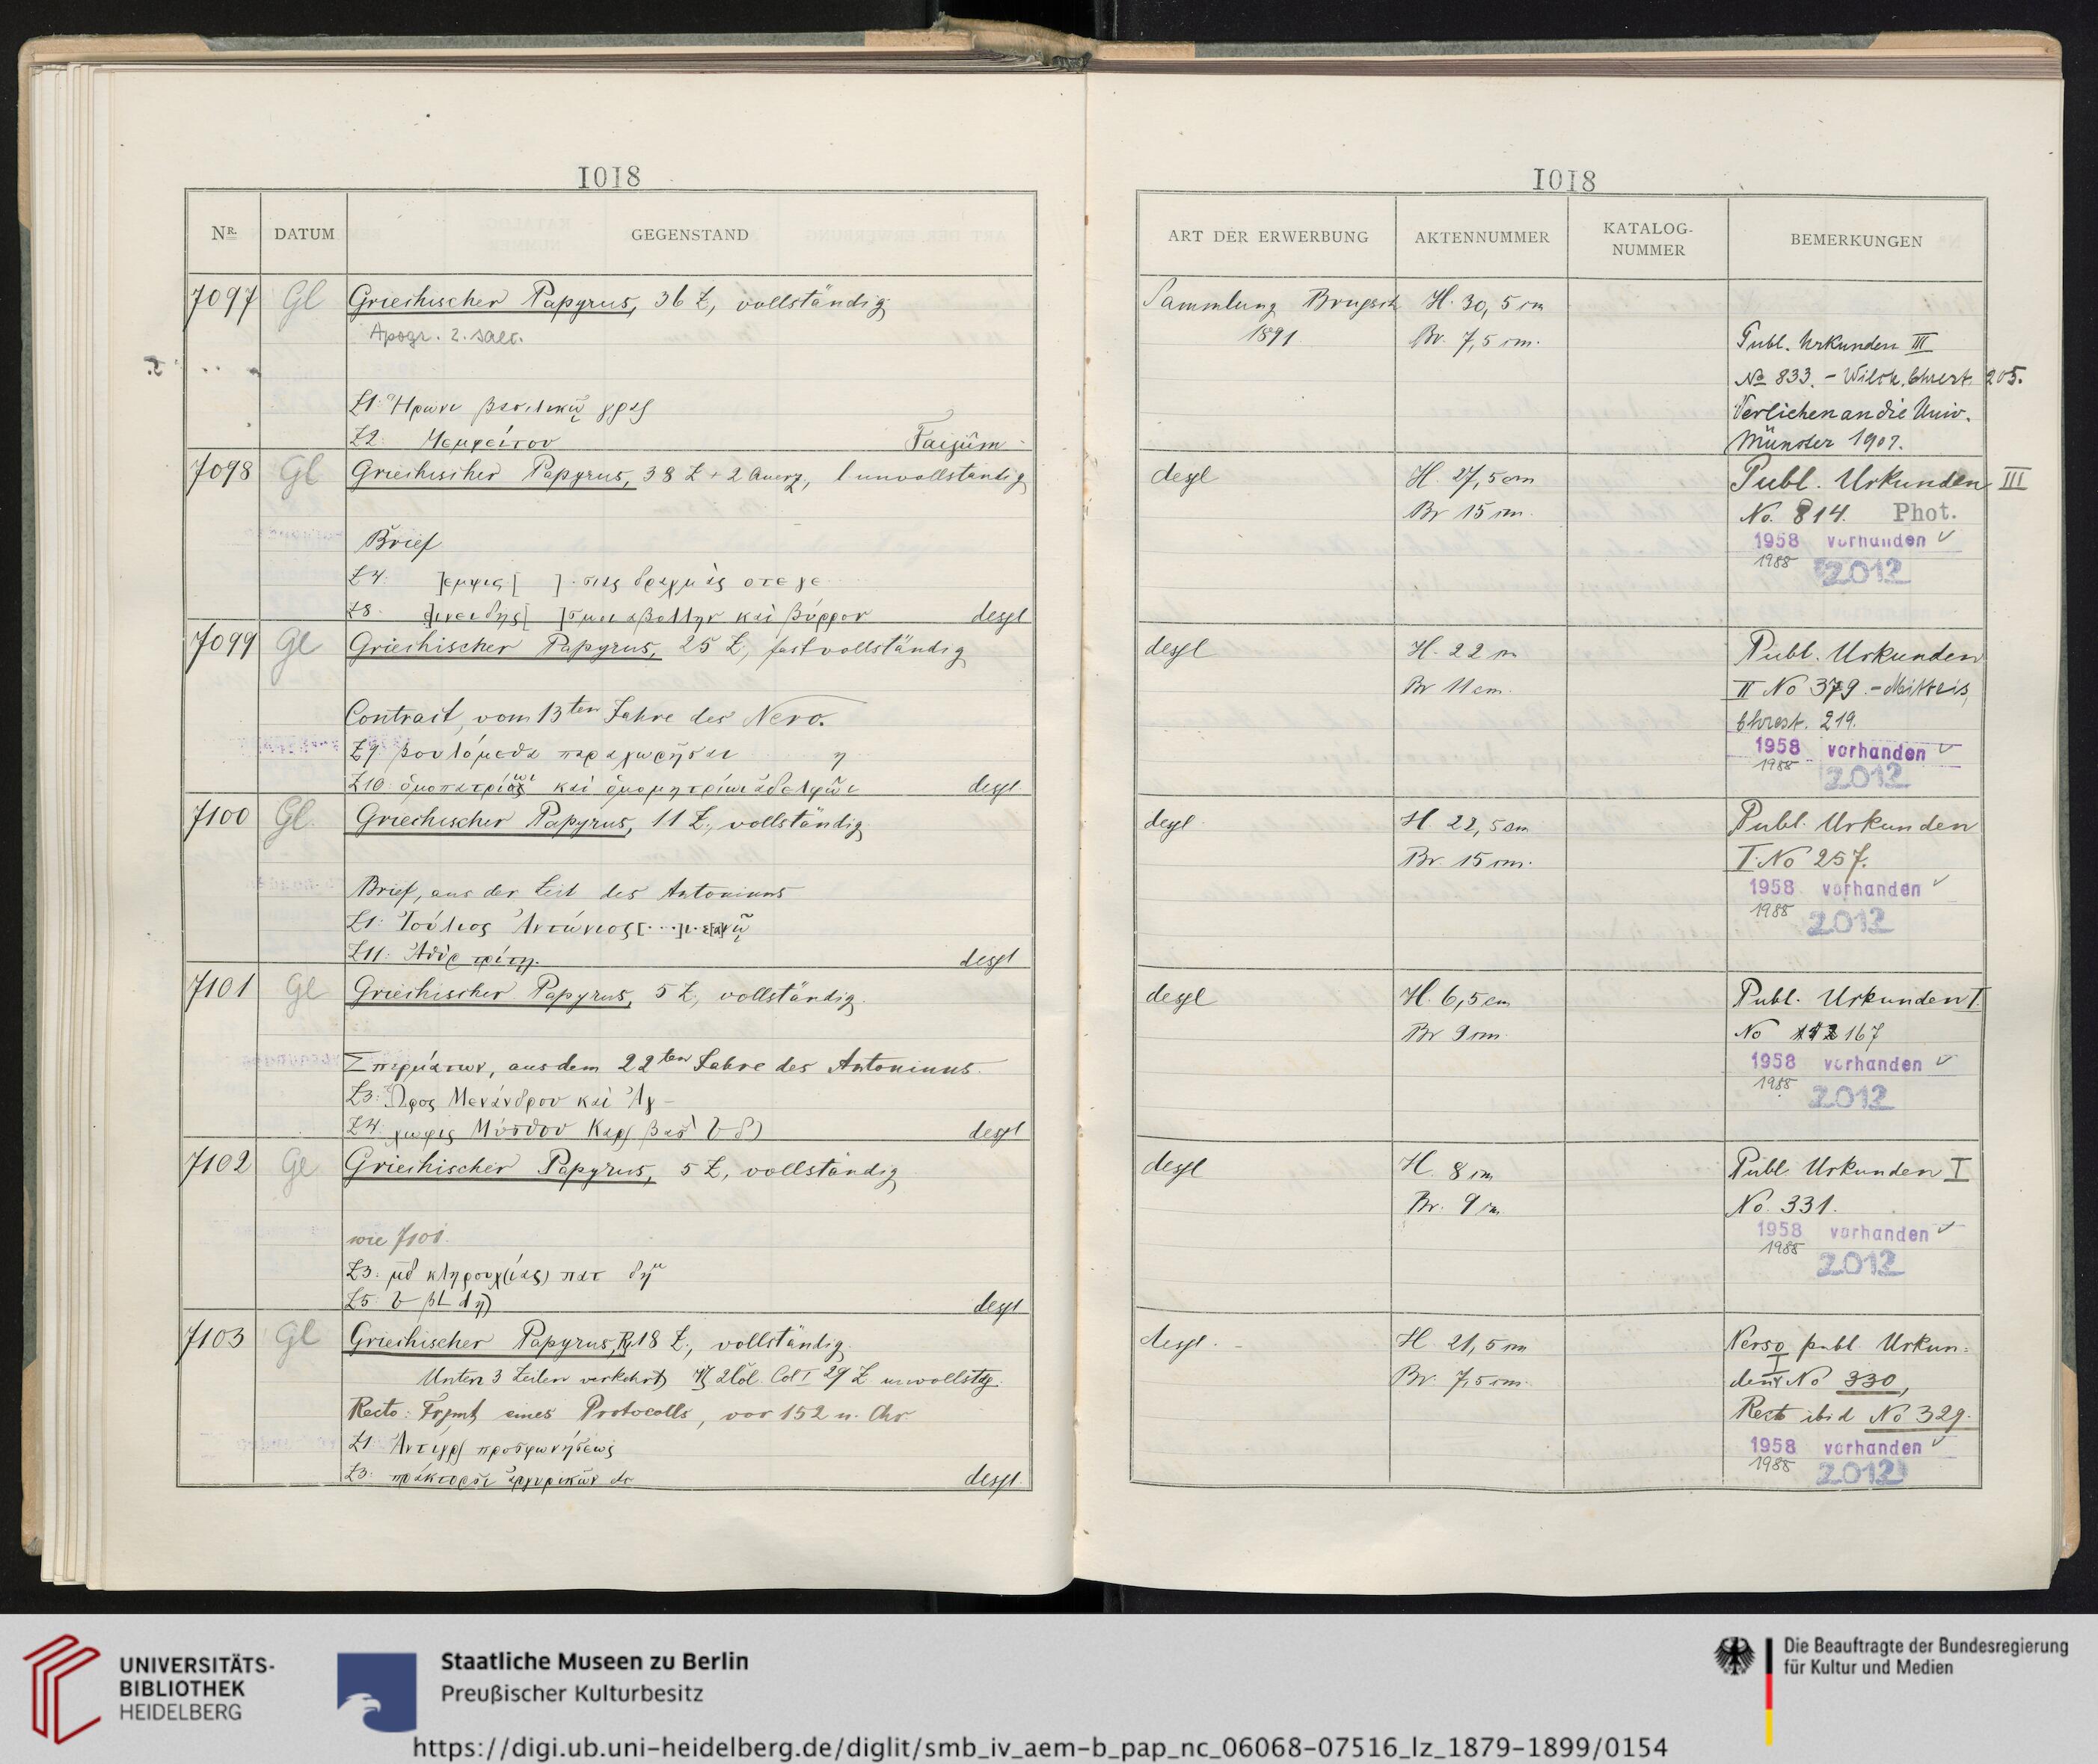 1018
Nr. DATUM GEGENSTAND
7097 Gl Griechischer Papyrus, 36 Z, vollständig
Apogr.
Z1: Ἥρωνι βασιλικῷ γρας
Z2: Μεμφείτου Faijûm
7098 Gl Griechischer Papyrus, 38 Z + 2 unvollständig
Brief
Z4:
Z8: καὶ βύρρον desgl
7099 Gl Griechischer Papyrus, 25 Z, fast vollständig
Contract, vom 13ten Jahre des Nero.
Z9 βουλόμεθα παραχωρῆσαι
Z10 καὶ ὁμομητρίωι ἀδελφῶι desgl
7100 Gl. Griechischer Papyrus, 11 Z., vollständig
Brief, aus der Zeit des Antoninus
Z1: Ἰούλιος Ἀντώνιος
Z11: Ἁθὺρ τρίτῃ. desgl
7101 Gl Griechischer Papyrus, 5 Z, vollständig.
Σπερμάτων, aus dem 22ten Jahre des Antoninus.
Z3: Ὧρος Μενάνδρου καὶ Ἁρ-
Z4: Μύσθου desgl
7102 Gl Griechischer Papyrus, 5 Z, vollständig
wie 7101.
Z3: μδ κληρουχ(ίας) πατ
Z5: desgl
7103 Gl Griechischer Papyrus, R. 18 Z., vollständig.
Unten 3 Zeilen verkehrt, 2 Col. Col I 29 Z unvollstg.
Recto: eines Protocolls, vor 152 n. Chr
Z1: Ἀντιγρς προσφωνήσεως
Z3: πράκτορσι ἀργυρικῶν desgl.
1018
ART DER ERWERBUNG AKTENNUMMER KATALOG-NUMMER BEMERKUNGEN
Sammlung Brugsch H. 30,5 cm
1891 Br. 7,5 cm. Publ. Urkunden III
No 833. – Wilck. Chrest. 205.
Verliehen an die Univ.
Münster 1907.
desgl H. 27,5 cm Publ. Urkunden III
Br 15 cm. No. 814. Phot.
1958 vorhanden
1988 2012
desgl H. 22 cm Publ. Urkunden
Br 11 cm. II No 379. – Mitteis,
Chrest. 219.
1958 vorhanden
1988 2012
desgl. H 22,5 cm Publ. Urkunden
Br. 15 cm. I. No 257.
1958 vorhanden
1988 2012
desgl H. 6,5 cm Publ. Urkunden I.
Br 9 cm No 167
1958 vorhanden
1988 2012
desgl H. 8 cm Publ Urkunden I
Br. 9 cm No. 331.
1958 vorhanden
1988 2012
desgl. H. 21,5 cm Verso publ Urkun-
Br. 7,5 cm. den I No 330,
Recto ibid No 329.
1958 vorhanden
1988 2012
UNIVERSITÄTS-
BIBLIOTHEK
HEIDELBERG
Staatliche Museen zu Berlin
Preußischer Kulturbesitz
Die Beauftragte der Bundesregierung
für Kultur und Medien
https://digi.ub.uni-heidelberg.de/diglit/smb_iv_aem-b_pap_nc_06068-07516_lz_1879-1899/0154